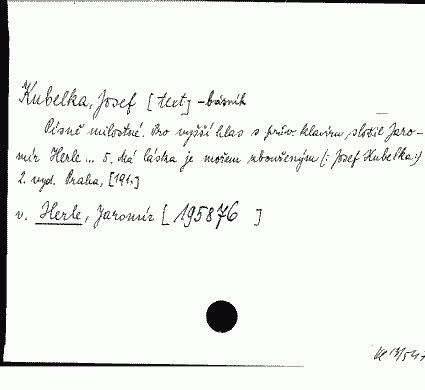 Kubelka, Josef [text] - básník
Písně milostné. Pro vyšší hlas s prův. klavíru složil Jaro-
mír Herle ... 5. Má láska je mořem zbouřeným (: Josef Kubelka:)
2. vyd. Praha, [191.]
v. Herle, Jaromír [195876 ]